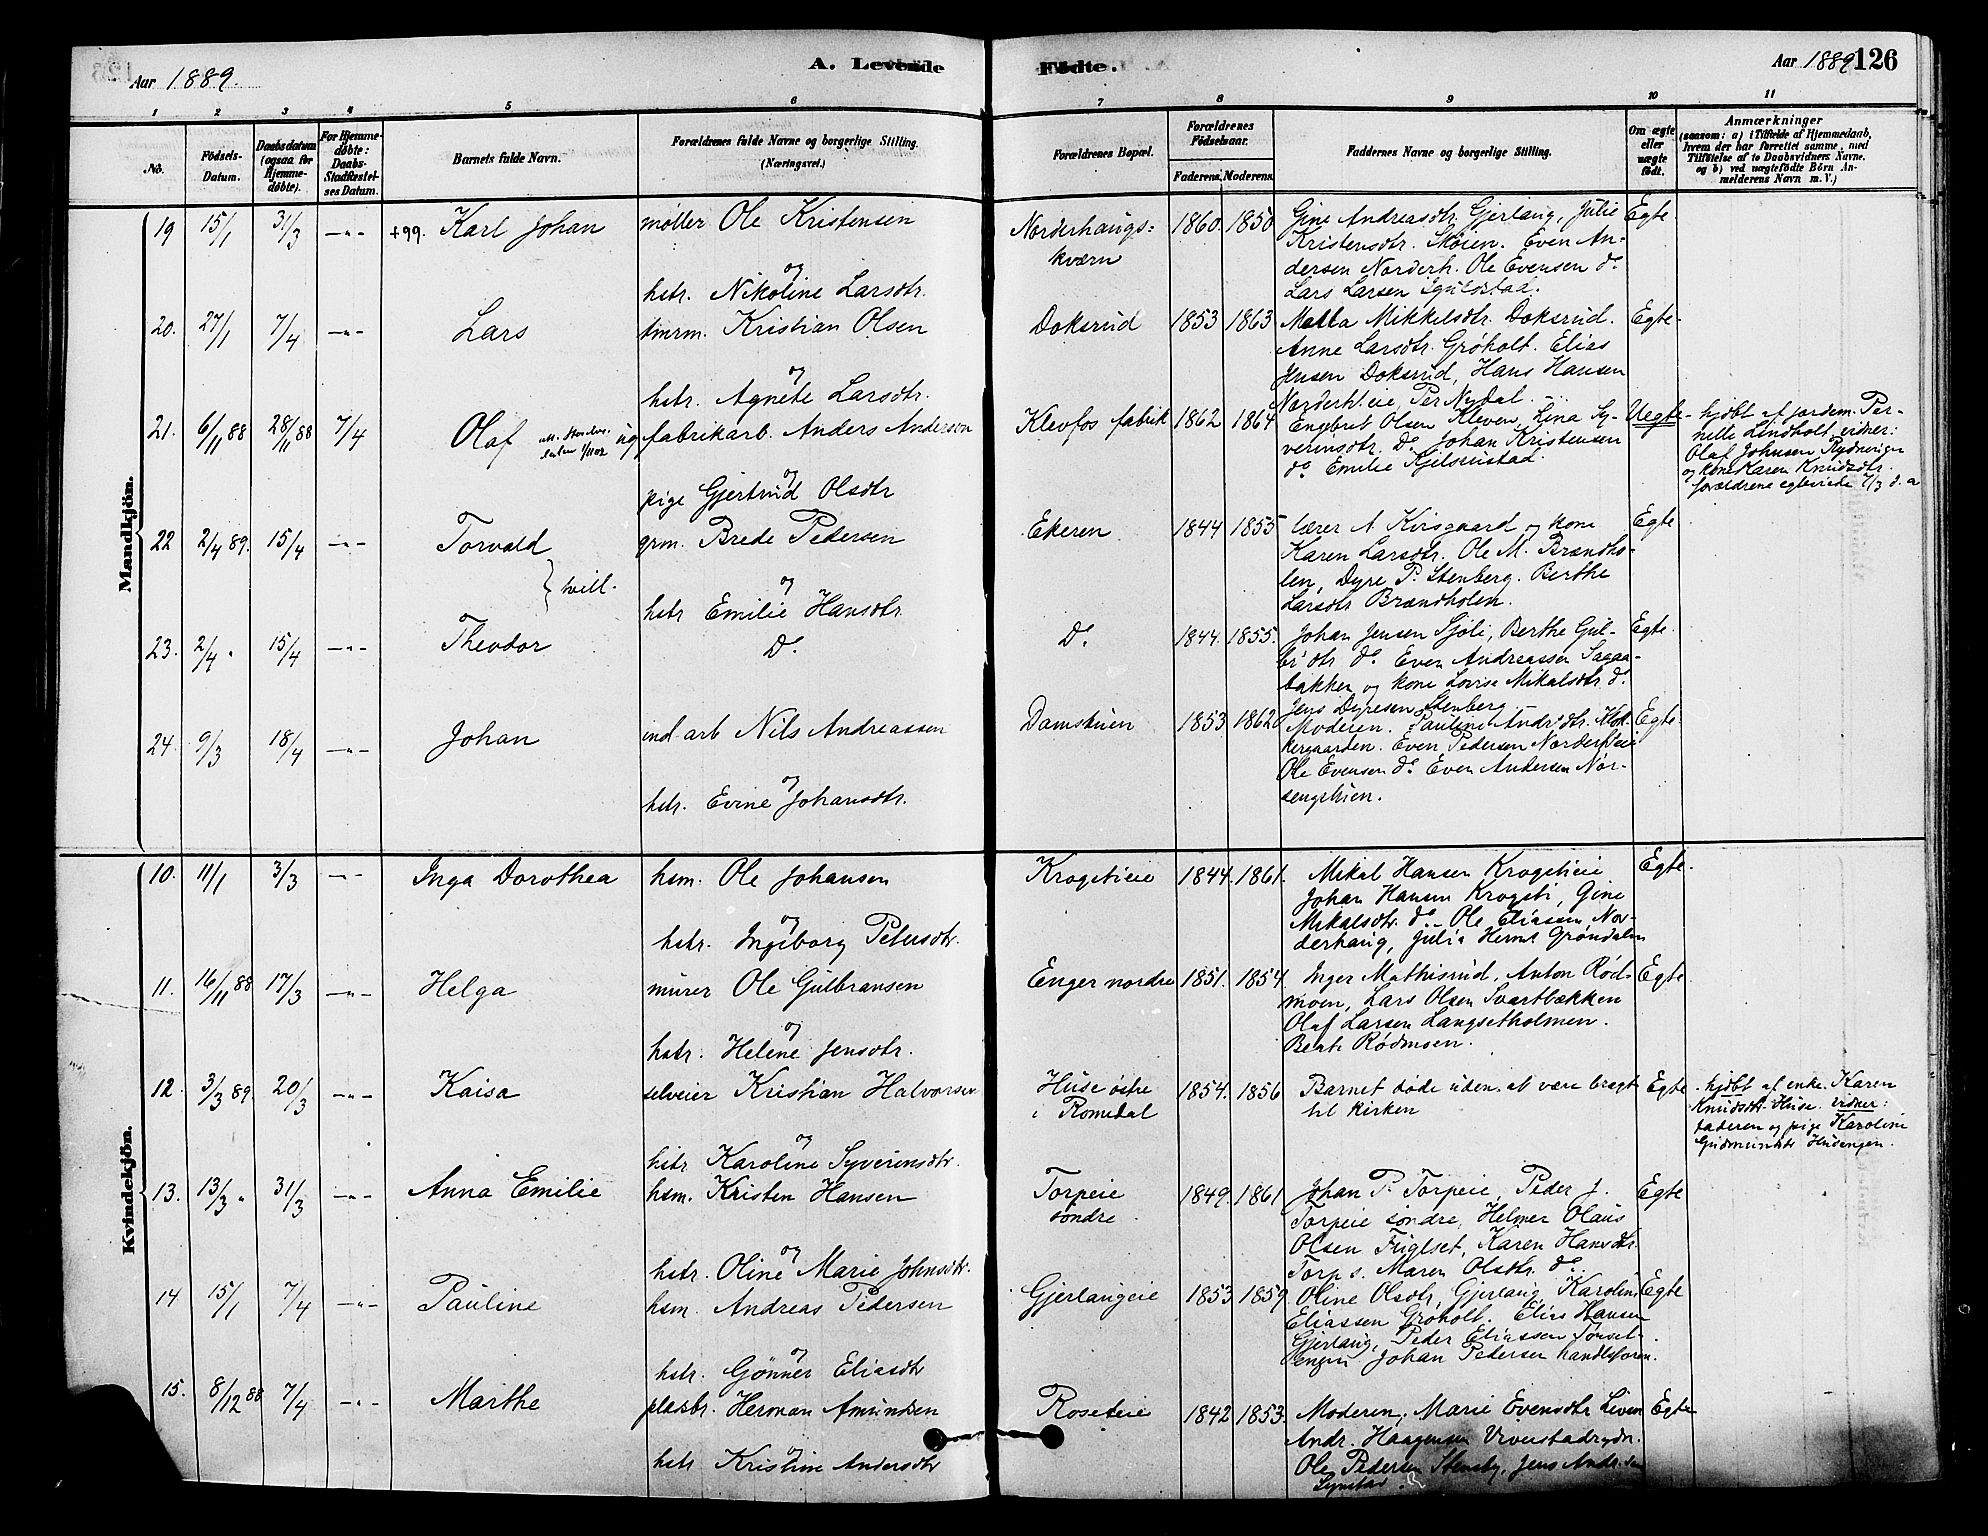 Aar 1889.
A. Levende
Fødte.
Aar 1889
126
1 2 3 4 5 6 7 8 9 10 11
No.
Fødsels-Datum.
Daabsdatum (ogsaa for Hjemmedøbte).
For Hjemmedøbte: Daabs-Stadfæstelses Datum.
Barnets fulde Navn.
Forældrenes fulde Navne og borgerlige Stilling. (Næringsvei.)
Forældrenes Bopæl.
Forældrenes Fødselsaar.
Faderens. Moderens.
Faddernes Navne og borgerlige Stilling.
Om ægte eller uægte født.
Anmærkninger
(saasom: a) i Tilfælde af Hjemmedaab, hvem der har forrettet samme, med Tilføielse af to Daabsvidners Navne, og b) ved uægtefødte Børn Anmelderens Navn m. V.)
Mandkjøn.
19 15/1 31/3 -"- +99. Karl Johan møller Ole Kristensen
og
hstr. Nikoline Larsdtr.
Norderhaugs-
kværn
1860. 1850.
Gine Andreasdtr. Gjerlaug, Julie
Kristensdtr. Skøien. Even An-
dersen Norderh. Ole Evensen do
Lars Larsen
Egte
20. 27/1 7/4 -"- Lars tmrm. Kristian Olsen
og
hstr. Agnete Larsdtr.
Doksrud 1853 1863
Matta Mikkelsdtr. Doksrud.
Anne Larsdtr. Grøholt. Elias
Jensen Doksrud, Hans Hansen
Norderhleie Per Nydal.
Egte
21. 6/11 88 28/11 88 7/4 Olaf ug fabrikarb. Anders Anderson
og
pige Gjertrud Olsdtr
Klevfos fabrik 1862 1864
Engebret Olsen Kleven, Lina Sy-
verinsdtr. do Johan Kristensen
do Emilie Kjelsrustad.
Uegte
hjdbt af jordem. Per-
nelle Lindholt, vidner:
Olaf Johnsen
og kone Karen Knudsdtr.
forældrene egteviede 7/3 d. a
22 2/4 89. 15/4 -"- Torvald } tvill. grm. Brede Pedersen
og
hstr Emilie Hansdtr
Ekeren 1844 1855
lærer A. Kirsgaard og kone
Karen Larsdtr. Ole M. Brændho-
len, Dyre P. Stenberg. Berthe
Larsdtr Brændholen.
Egte
23. 2/4 " 15/4 -"- Theodor Do.
Do. 1844. 1855.
Johan Jensen Sjøli, Berthe Gul-
br dtr do. Even Andreassen Sagaa-
bakken og kone Lovise Mikalsdtr do.
Jens Dyresen Stenberg
Egte
24. 9/3 18/4 -"- Johan ind. arb Nils Andreassen
og
hstr. Evine Johansdtr.
Damstuen 1853 1862
Moderen. Pauline Andr dtr. Klok-
kergaarden. Even Pedersen Norderhleie
Ole Evensen do Even Andersen Nor-
sengstuen.
Egte
Kvindekjøn.
10. 11/1 3/3 -"- Inga Dorothea hsm. Ole Johansen
og
hstr. Ingeborg Petersdtr.
Krogstieie 1844. 1861.
Mikal Hansen Krogstieie
Johan Hansen Krogsti, Gine
Mikalsdtr. do Ole Eliassen Nor-
derhaug, Julia Herms Grøndalen
Egte
11. 16/11 88 17/3 -"- Helga murer Ole Gulbransen
og
hstr. Helene Jensdtr.
Enger nordre 1851. 1854.
Inger Mathisrud, Anton Rød-
moen, Lars Olsen Svartbækken
Olaf Larsen Langsetholmen.
Berte Rødmoen.
Egte
12. 3/3 89. 20/3 -"- Kaisa selveier Kristian Halvorsen
og
hstr Karoline Syverinsdtr.
Huse østre
i Romedal
1854. 1856
Barnet døde uden at være bragt
til kirken
Egte
hjdbt af enke Karen
Knudsdtr Huse. Vidner:
faderen og pige Karoline
Husengen.
13. 13/3 " 31/3 -"- Anna Emilie hsm. Kristen Hansen
og
hstr. Oline Marie Johnsdtr.
Torpeie
søndre.
1849. 1861
Johan P. Torpeie, Peder J.
Torpeie søndre, Helmer Olaus
Olsen Fuglset, Karen Hansdtr.
Torp s. Maren Olsdtr. do.
Egte
14 15/1 7/4 -"- Pauline hsm. Andreas Pedersen
og
hstr. Gønner Eliasdtr
Gjerlaugeie 1853 1859
Oline Olsdtr, Gjerlaug, Karoline
Eliassen Grøholt. Elias Hansen
Gjerlaug, Peder Eliassen Tønset-
engen Johan Pedersen handlsforen.
Egte
15. 8/12 88 7/4 -"- Marthe pladsbr. Herman Amundsen
og
hstr Kristine Andersdtr
Roseteie 1842 1853.
Moderen, Marie Evensdtr Liven
Andr. Haagensen Viverstadrydn.
Ole Pedersen Stensby, Jens Andr.sen
Egte